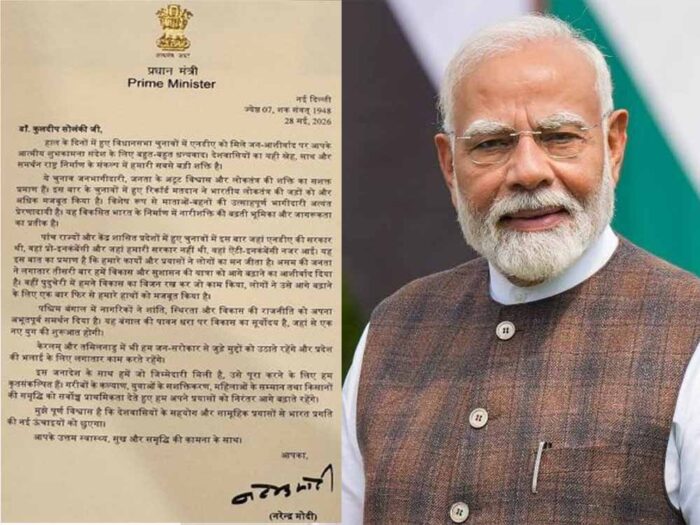 प्रधान मंत्री
Prime Minister
नई दिल्ली
ज्येष्ठ 07, शक संवत् 1948
28 मई, 2026
डॉ. कुलदीप सोलंकी जी,
हाल के दिनों में हुए विधानसभा चुनावों में एनडीए को मिले जन-आशीर्वाद पर आपके
आत्मीय शुभकामना संदेश के लिए बहुत-बहुत धन्यवाद। देशवासियों का यही स्नेह, साथ और
समर्थन राष्ट्र निर्माण के संकल्प में हमारी सबसे बड़ी शक्ति है।
ये चुनाव जनभागीदारी, जनता के अटूट विश्वास और लोकतंत्र की शक्ति का सशक्त
प्रमाण हैं। इस बार के चुनावों में हुए रिकॉर्ड मतदान ने भारतीय लोकतंत्र की जड़ों को और
अधिक मजबूत किया है। विशेष रूप से माताओं-बहनों की उत्साहपूर्ण भागीदारी अत्यंत
प्रेरणादायी है। यह विकसित भारत के निर्माण में नारीशक्ति की बढ़ती भूमिका और जागरूकता
का प्रतीक है।
पांच राज्यों और केंद्र शासित प्रदेशों में हुए चुनावों में इस बार जहां एनडीए की सरकार
थी, वहां प्रो-इनकंबेंसी और जहां हमारी सरकार नहीं थी, वहां ऐंटी-इनकंबेंसी नजर आई। यह
इस बात का प्रमाण है कि हमारे कार्यों और प्रयासों ने लोगों का मन जीता है। असम की जनता
ने लगातार तीसरी बार हमें विकास और सुशासन की यात्रा को आगे बढ़ाने का आशीर्वाद दिया
है। वहीं पुदुचेरी में हमने विकास का विजन रख कर जो काम किया, लोगों ने उसे आगे बढ़ाने
के लिए एक बार फिर से हमारे हाथों को मजबूत किया है।
पश्चिम बंगाल में नागरिकों ने शांति, स्थिरता और विकास की राजनीति को अपना
अभूतपूर्व समर्थन दिया है। यह बंगाल की पावन धरा पर विकास का सूर्योदय है, जहां से एक
नए युग की शुरूआत होगी।
केरलम और तमिलनाडु में भी हम जन-सरोकार से जुड़े मुद्दों को उठाते रहेंगे और प्रदेश
की भलाई के लिए लगातार काम करते रहेंगे।
इस जनादेश के साथ हमें जो जिम्मेदारी मिली है, उसे पूरा करने के लिए हम
कृतसंकल्पित हैं। गरीबों के कल्याण, युवाओं के सशक्तिकरण, महिलाओं के सम्मान तथा किसानों
की समृद्धि को सर्वोच्च प्राथमिकता देते हुए हम अपने प्रयासों को निरंतर आगे बढ़ाते रहेंगे।
मुझे पूर्ण विश्वास है कि देशवासियों के सहयोग और सामूहिक प्रयासों से भारत प्रगति
की नई ऊंचाइयों को छुएगा।
आपके उत्तम स्वास्थ्य, सुख और समृद्धि की कामना के साथ।
आपका,
(नरेन्द्र मोदी)